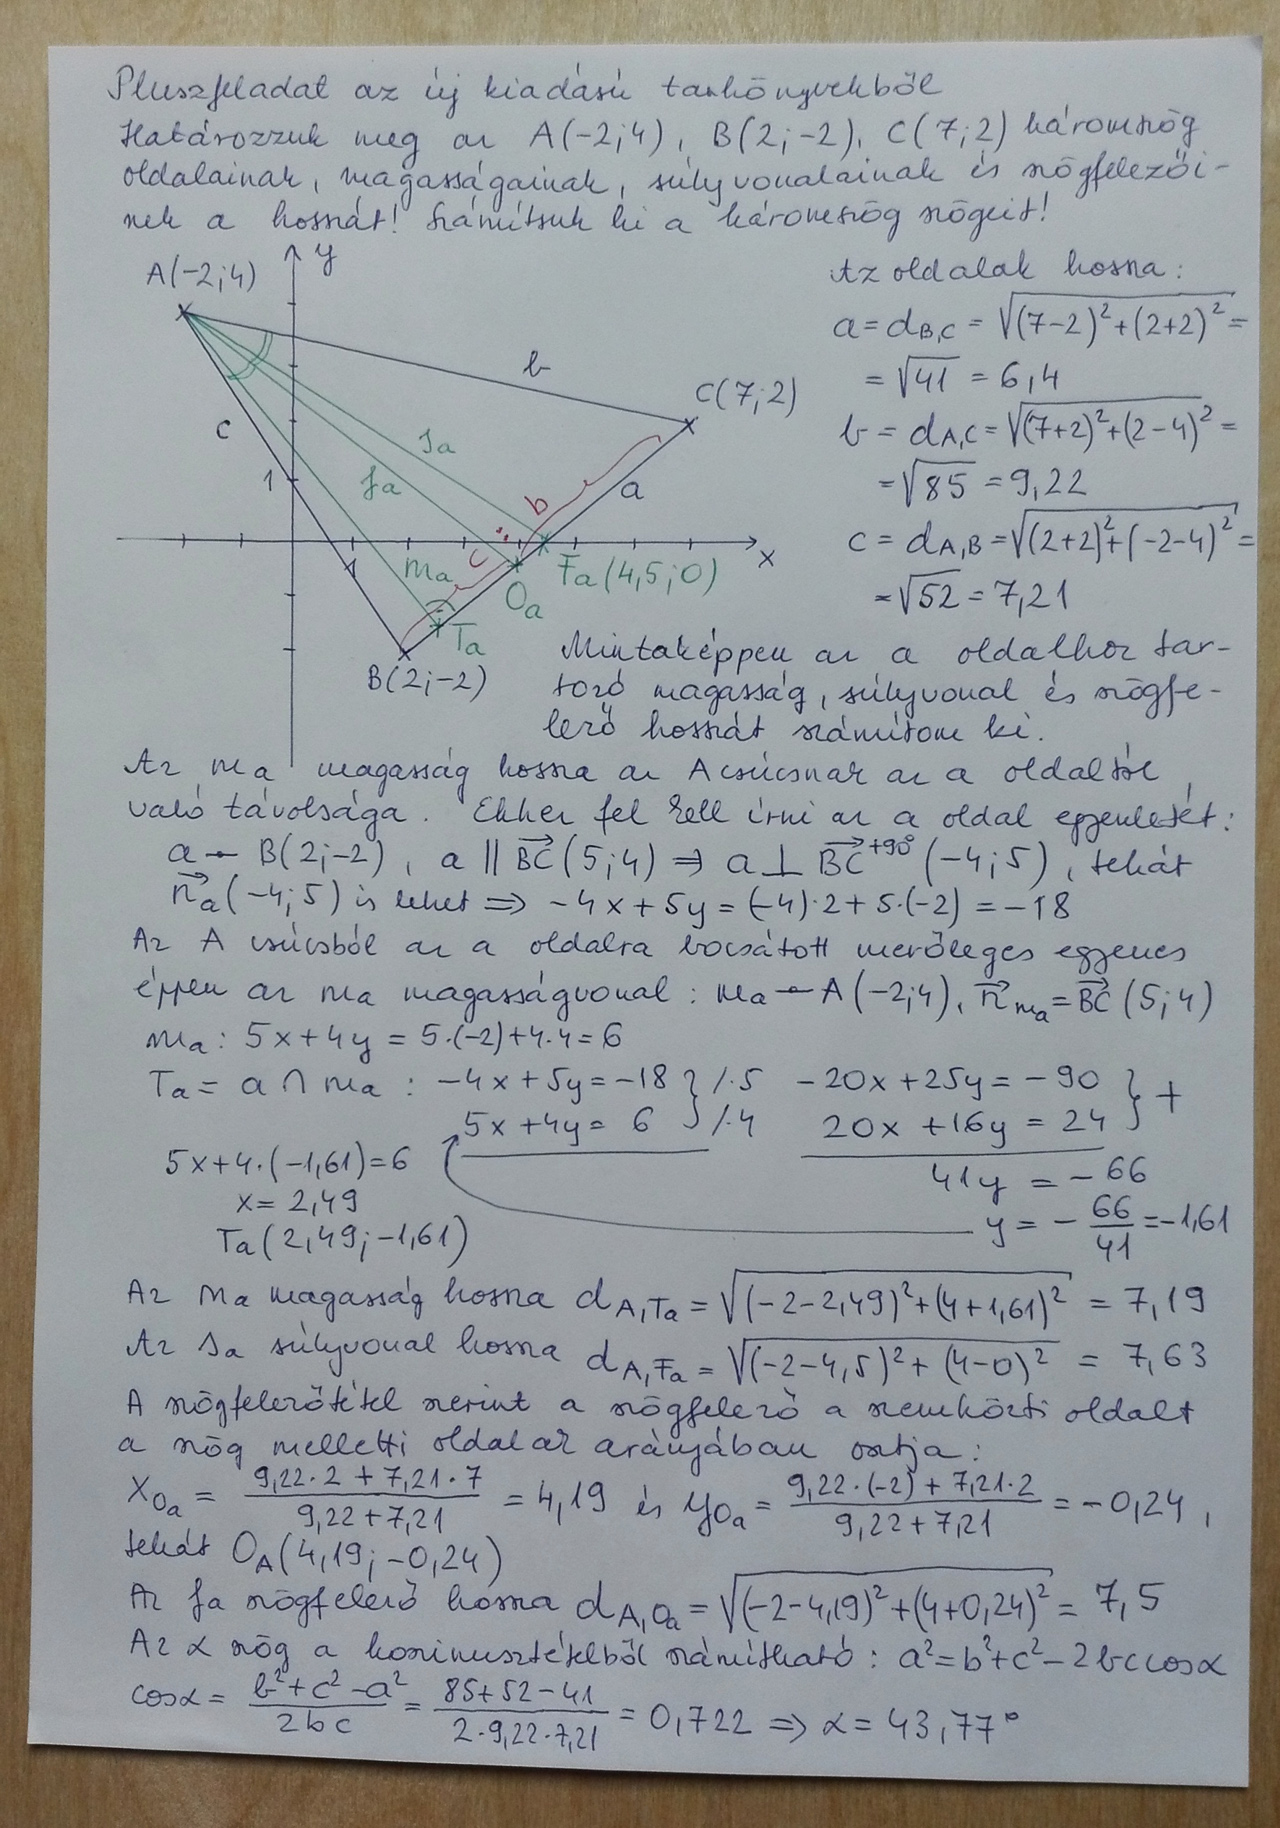 Pluszfeladat az új kiadású tankönyvekből
Határozzuk meg az A(-2;4), B(2;-2), C(7;2) háromszög
oldalainak, magasságainak, súlyvonalainak és szögfelezői-
nek a hosszát! Számítsuk ki a háromszög szögeit!
A(-2;4)
y
b
C(7;2)
c
sa
fa
1
b
a
c
ma
Fa(4,5;0)
x
1
Oa
Ta
B(2;-2)
Az oldalak hossza:
a = dB,C = √(7-2)²+(2+2)² =
= √41 = 6,4
b = dA,C = √(7+2)²+(2-4)² =
= √85 = 9,22
c = dA,B = √(2+2)²+(-2-4)² =
= √52 = 7,21
Mintaképpen az a oldalhoz tar-
tozó magasság, súlyvonal és szögfe-
lező hosszát számítom ki.
Az ma magasság hossza az A csúcsnak az a oldaltól
való távolsága. Ehhez fel kell írni az a oldal egyenletét:
a – B(2;-2), a || BC→(5;4) ⇒ a ⊥ BC→+90°(-4;5), tehát
n→a(-4;5) is lehet ⇒ -4x+5y=(-4)·2+5·(-2)=-18
Az A csúcsból az a oldalra bocsátott merőleges egyenes
éppen az ma magasságvonal: ma – A(-2;4), n→ma = BC→(5;4)
ma: 5x+4y = 5·(-2)+4·4=6
Ta = a ∩ ma : -4x+5y=-18 } /·5 -20x+25y=-90 } +
5x+4y= 6 } /·4 20x+16y = 24
5x+4·(-1,61)=6
41y = -66
x= 2,49
y = - 66/41 = -1,61
Ta(2,49;-1,61)
Az ma magasság hossza dA,Ta = √(-2-2,49)²+(4+1,61)² = 7,19
Az sa súlyvonal hossza dA,Fa = √(-2-4,5)²+(4-0)² = 7,63
A szögfelezőtétel szerint a szögfelező a szemközti oldalt
a szög melletti oldalak arányában osztja:
xOa = 9,22·2+7,21·7 / 9,22+7,21 = 4,19 és yOa = 9,22·(-2)+7,21·2 / 9,22+7,21 = -0,24,
tehát OA(4,19;-0,24)
Az fa szögfelező hossza dA,Oa = √(-2-4,19)²+(4+0,24)² = 7,5
Az α szög a koszinusztételből számítható: a²=b²+c²-2bccosα
cosα = b²+c²-a² / 2bc = 85+52-41 / 2·9,22·7,21 = 0,722 ⇒ α = 43,77°